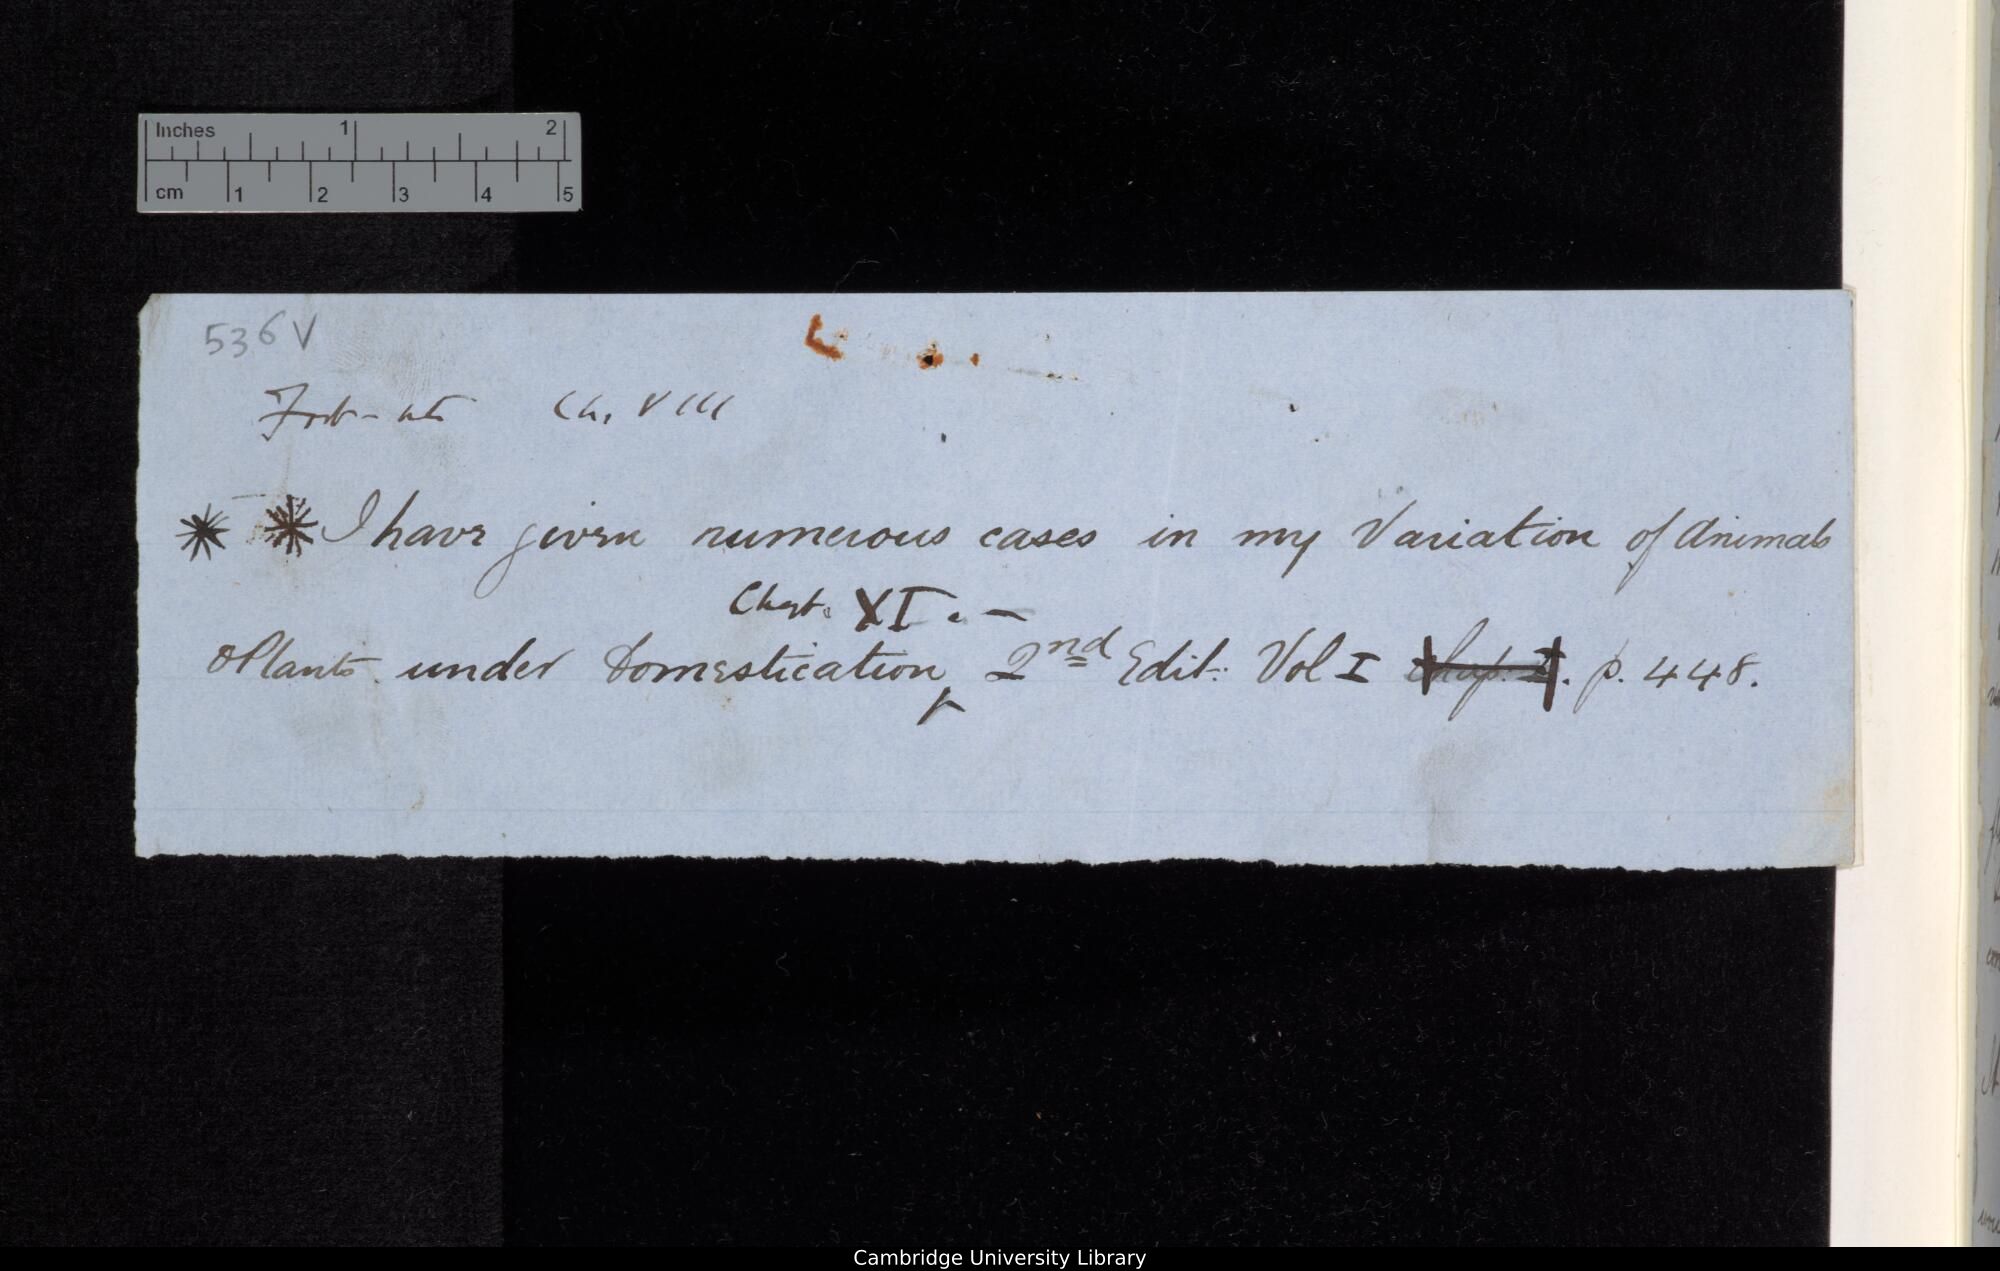 Inches 1 2
cm 1 2 3 4 5
536 V
Foot-note Ch. VIII
* * I have given numerous cases in my Variation of Animals
Chapt. XI. —
& Plants under Domestication, 2nd Edit: Vol I Chap. . p. 448.
Cambridge University Library